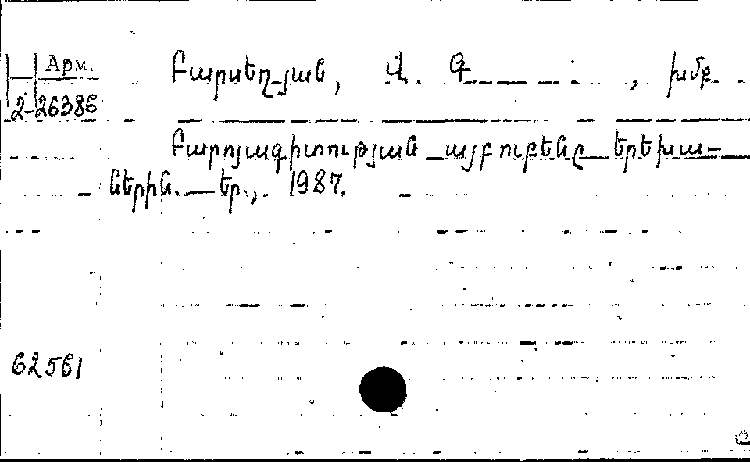 Арм.
2-26386
Բարսեղյան, Վ. Գ. , խմբ.
Բարոյագիտության այբուբենը երեխա-
ներին. Եր., 1987.
62561